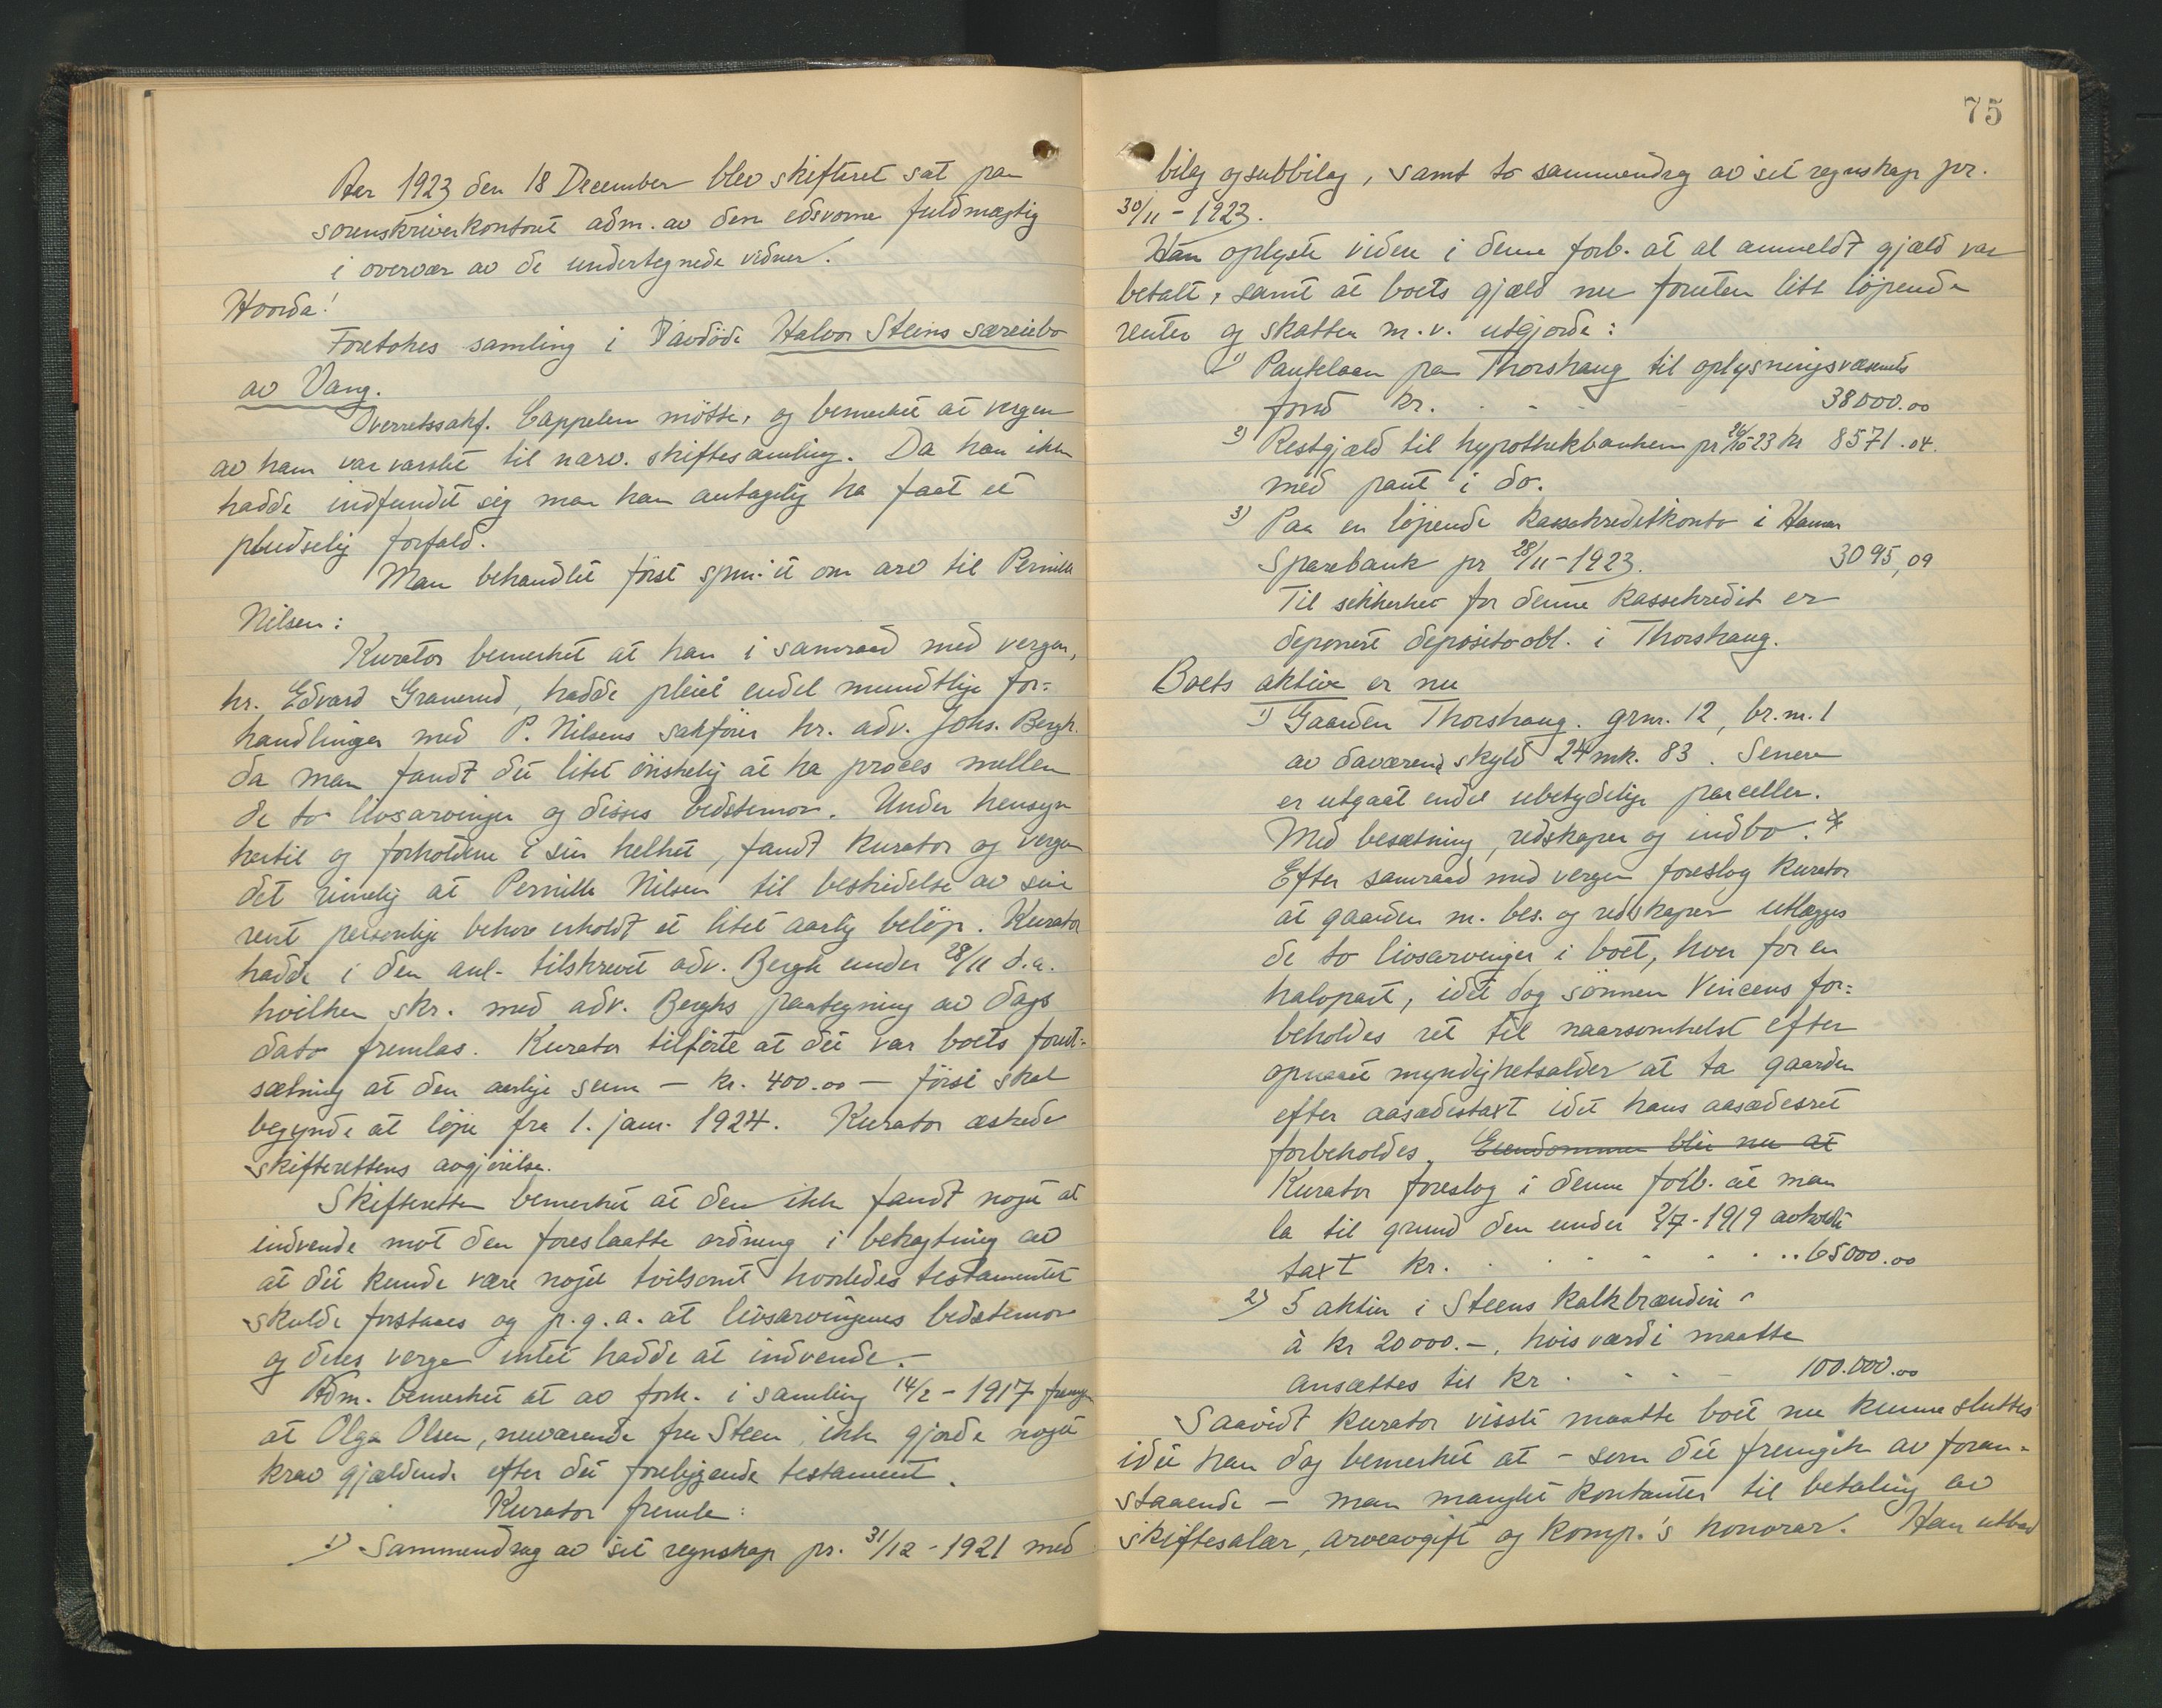 Aar 1923 den 18 December blev skifteret sat paa
sorenskriverkontoret adm. av den edsvorne fuldmægtig
i overvær av de undertegnede vidner.
Hvorda!
Foretokes samling i avdöde Halvor Steins særeiebo
av Vang.
Overretssakf. Cappelen mötte, og bemerket at vergen
av ham var varslet til nærv. skiftesamling. Da han ikke
hadde indfundet sig maa han antagelig ha faat et
pludselig forfald.
Man behandlet först spm.'et om arv til Pernille
Nilsen:
Kurator bemerket at han i samraad med vergen,
hr. Edvard Granerud, hadde pleiet endel mundtlige for=
handlinger med P. Nilsens sakförer hr. adv. Johs. Bergh.
da man fandt det litet önskelig at ha proces mellem
de to livsarvinger og disses bedstemor. Under hensyn
hertil og forholdene i sin helhet, fandt kurator og vergen
det rimelig at Pernille Nilsen til bestridelse av sine
rent personlige behov erholdt et litet aarlig belöp. Kurator
hadde i den anl. tilskrevet adv. Bergh under 28/11 d.a.
hvilken skr. med adv. Berghs paategning av dags
dato fremlas. Kurator tilförte at det var boets forut=
sætning at den aarlige sum – kr. 400.00 – först skal
begynde at löpe fra 1. jan. 1924. Kurator æskede
skifterettens avgjörelse.
Skifteretten bemerket at den ikke fandt noget at
indvende mot den foreslaatte ordning i betragtning av
at det kunde være noget tvilsomt hvorledes testamentet
skulde forstaaes og p.g.a. at livsarvingenes bedstemor
og deres verge intet hadde at indvende.–
Adm. bemerket at av forh. i samling 14/2 – 1917 fremgik
at Olga Olsen, nuværende fru Steen, ikke gjorde noget
krav gjældende efter det foreliggende testament.
Kurator fremla:
1) Sammendrag av sit regnskap pr. 31/12 – 1921 med
75
bilag og subbilag, samt to sammendrag av sit regnskap pr.
30/11 – 1923.
Han oplyste videre i denne forb. at al anmeldt gjæld var
betalt, samt at boets gjæld nu foruten litt löpende
renter og skatter m.v. utgjorde:
1) Pantelaan paa Thorshaug til oplysningsvæsenets
fond kr. . . . 38000.00
2) Restgjæld til hypothekbanken pr 26/10-23 kr 8571.04.
med pant i do.
3) Paa en löpende kassekreditkonto i Hamar
Sparebank pr 28/11 – 1923. 3095,09
Til sikkerhet for denne kassekredit er
deponert deposito-obl. i Thorshaug.
Boets aktiva er nu
1) Gaarden Thorshaug. grnr. 12, br.nr. 1
av daværende skyld 24 mk. 83. Senere
er utgaat endel ubetydelige parceller.
Med besætning, redskaper og indbo.
Efter samraad med vergen foreslog kurator
at gaarden m. bes. og redskaper utlægges
de to livsarvinger i boet, hver for en
halvpart, idet dog sönnen Vincens for=
beholdes ret til naarsomhelst efter
opnaaet myndighetsalder at ta gaarden
efter aasædestaxt idet hans aasædesret
forbeholdes. Eiendommen blir nu at
Kurator foreslog i denne forb. at man
la til grund den under 2/7 – 1919 avholdte
taxt kr. . . . . . . 65000.00
2) 5 aktier i Steens kalkbrænderi
à kr 20000.–, hvis værdi maatte
ansættes til kr . . . – 100.000.00
Saavidt kurator visste maatte boet nu kunne sluttes
idet han dog bemerket at – som det fremgik av foran=
staaende – man manglet kontanter til betaling av
skiftesalær, arveavgift og komp.'s honorar. Han utbad